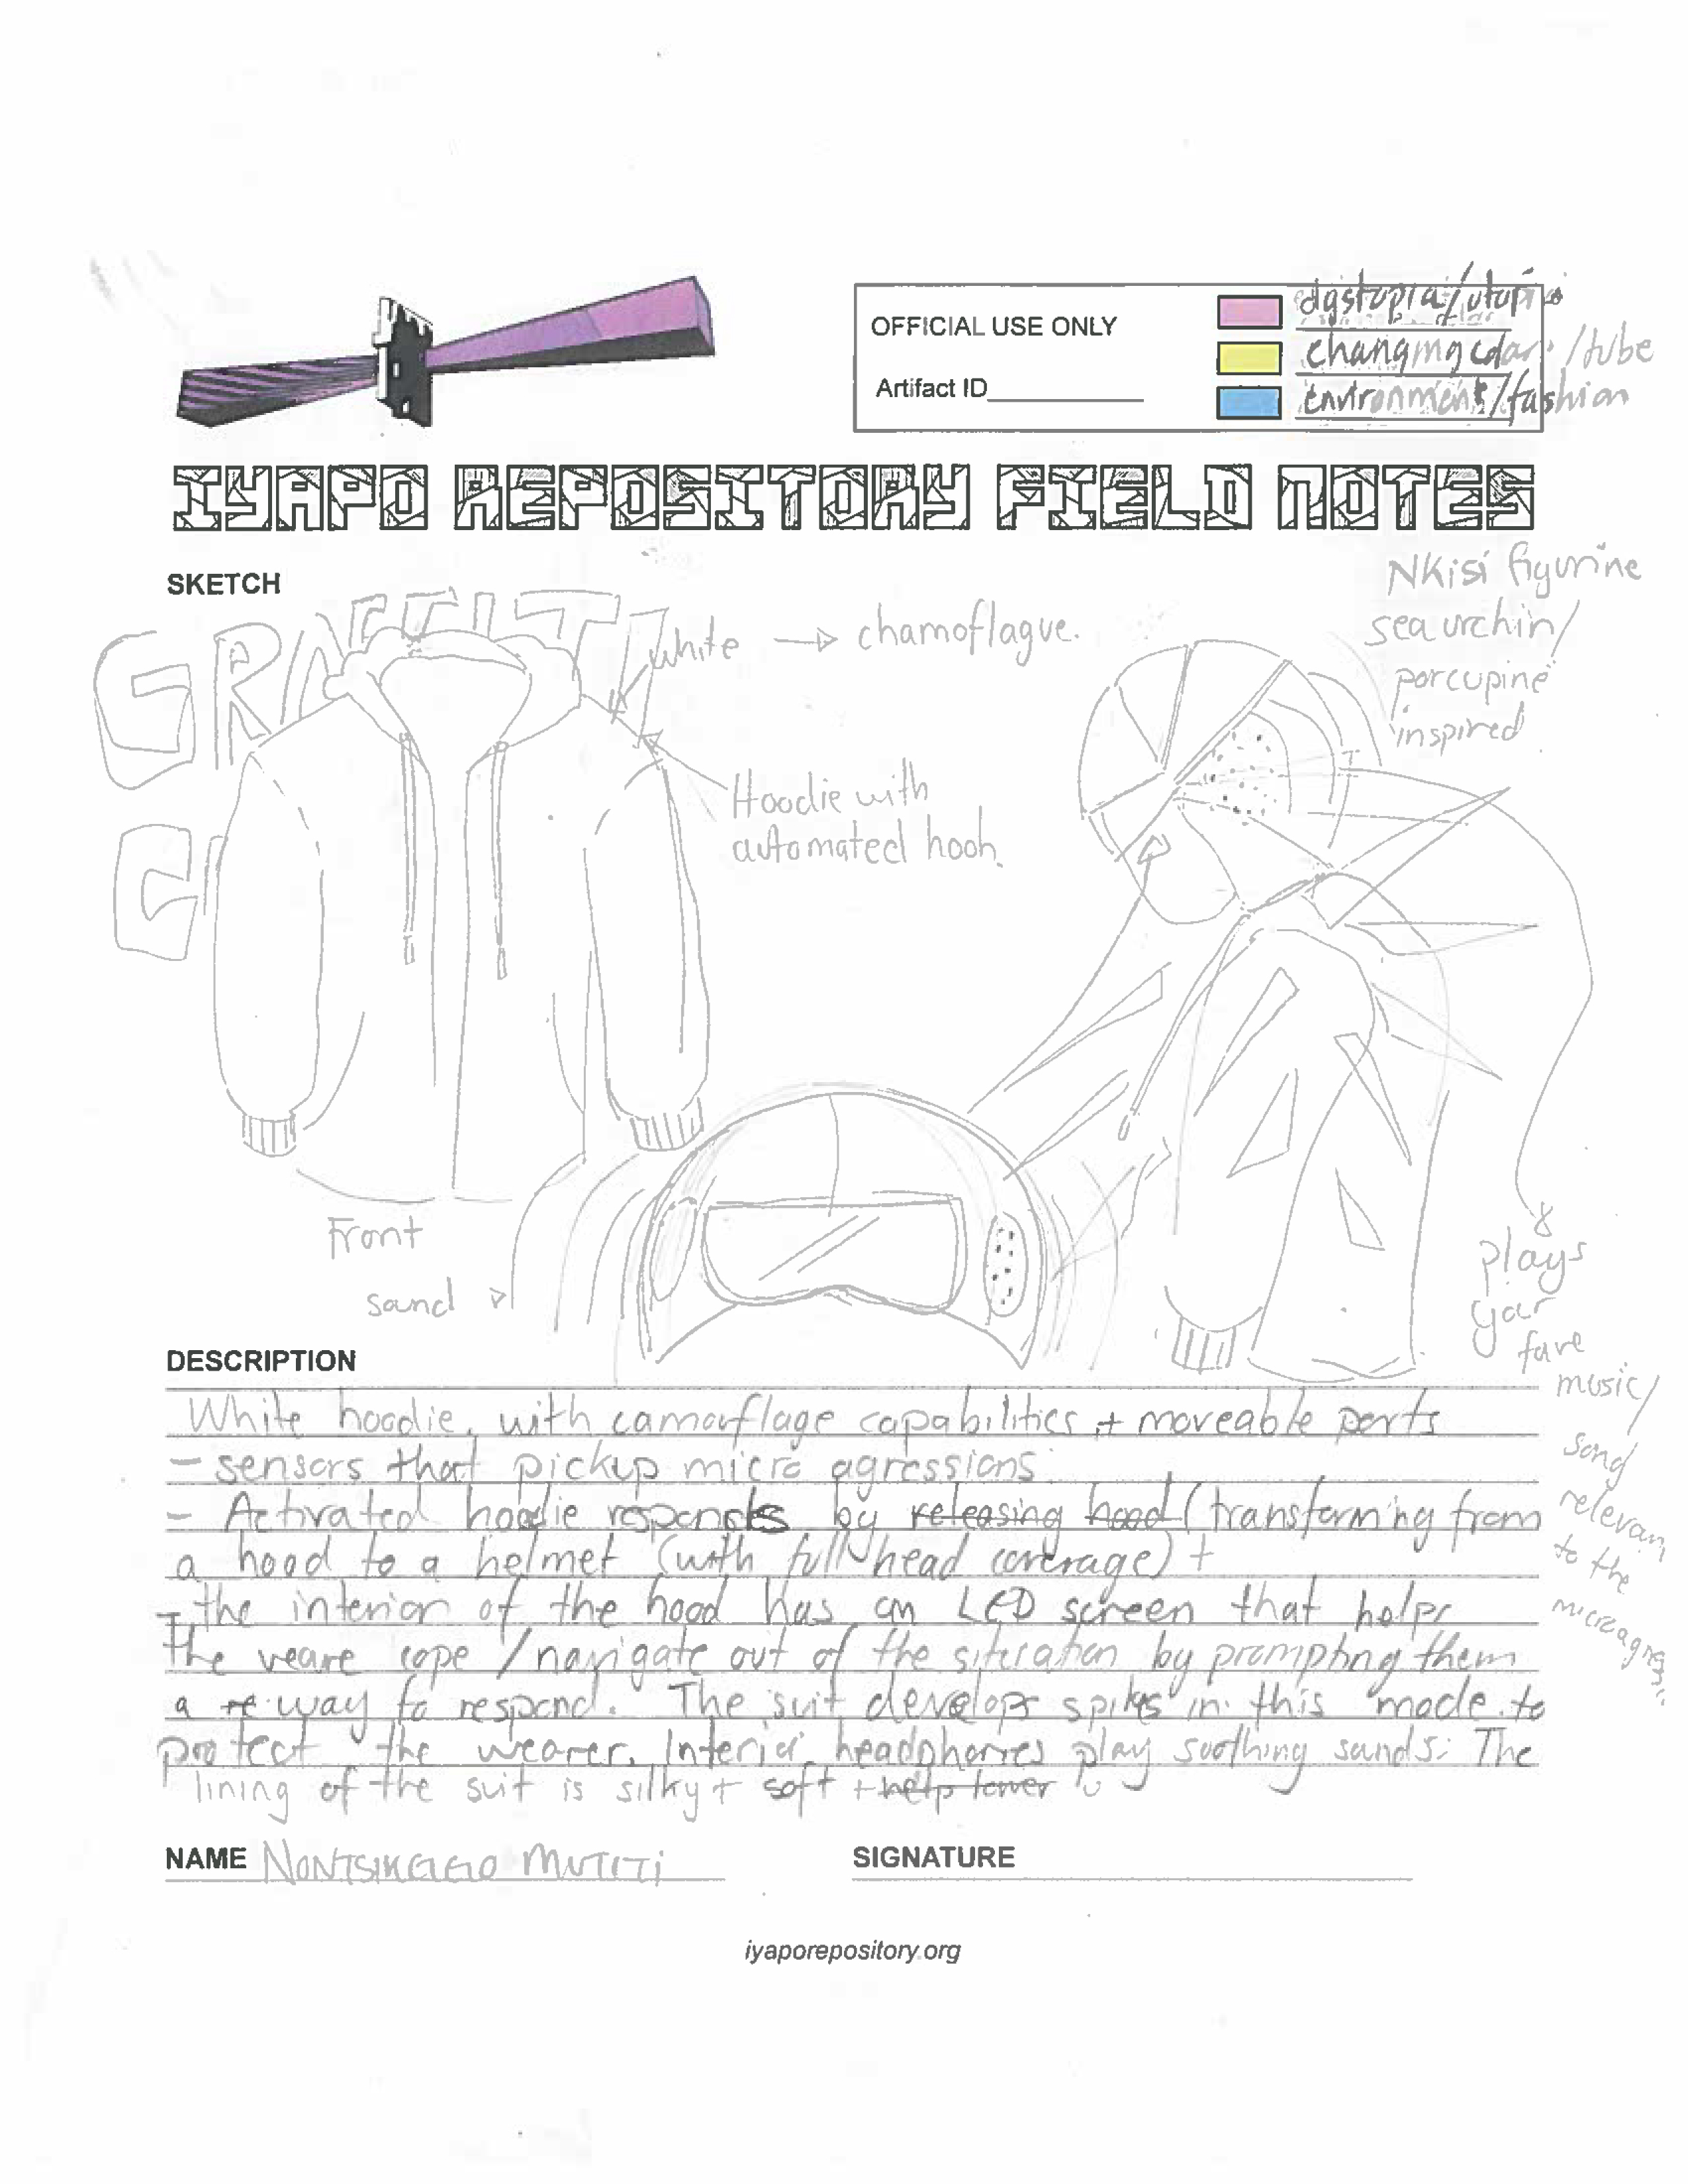 OFFICIAL USE ONLY
Artifact ID
dystopia/utopia
changing color /tube
environment/fashion
IYAPO REPOSITORY FIELD NOTES
SKETCH
GRAFFITI
white → chamoflague.
Nkisi figurine
sea urchin/
porcupine
inspired
Hoodie with
automated hooh.
Front
sound
plays
your
fave
music/
song
relevant
to the
microagress
DESCRIPTION
White hoodie, with camorflage capabilities + moveable parts
- sensors that pickup micro agressions
- Activated hoodie responds by releasing hood (transforming from
a hood to a helmet (with full head coverage) +
- the interior of the hood has an LED screen that helps
the weare cope / navigate out of the situration by prompting them
a re way to respond. The suit develops spikes in this mode to
protect the wearer. Interior headphones play soothing sounds. The
lining of the suit is silky + soft + help lower
NAME NONTSIKELELO MUTITI
SIGNATURE
iyaporepository.org